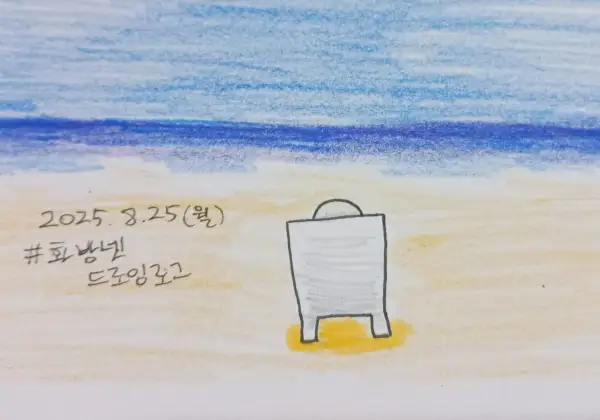 2025. 8.25(월)
#화방넷
드로잉로그